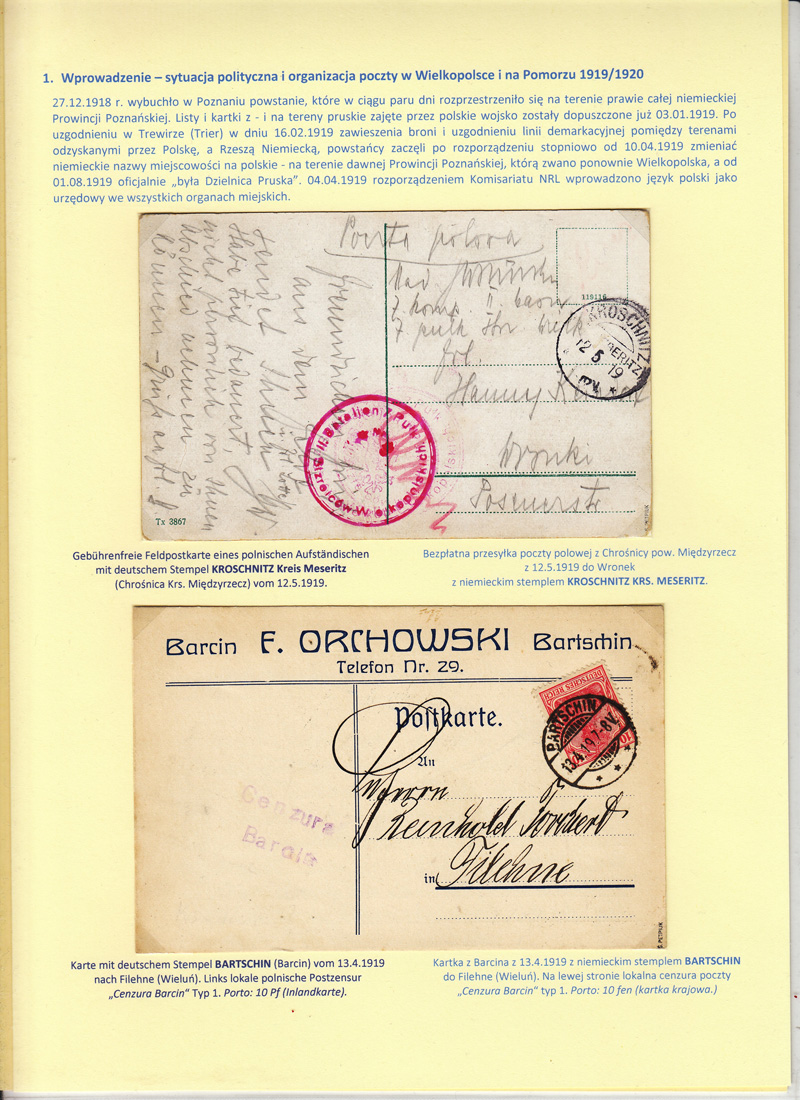 1. Wprowadzenie – sytuacja polityczna i organizacja poczty w Wielkopolsce i na Pomorzu 1919/1920
27.12.1918 r. wybuchło w Poznaniu powstanie, które w ciągu paru dni rozprzestrzeniło się na terenie prawie całej niemieckiej
Prowincji Poznańskiej. Listy i kartki z - i na tereny pruskie zajęte przez polskie wojsko zostały dopuszczone już 03.01.1919. Po
uzgodnieniu w Trewirze (Trier) w dniu 16.02.1919 zawieszenia broni i uzgodnieniu linii demarkacyjnej pomiędzy terenami
odzyskanymi przez Polskę, a Rzeszą Niemiecką, powstańcy zaczęli po rozporządzeniu stopniowo od 10.04.1919 zmieniać
niemieckie nazwy miejscowości na polskie - na terenie dawnej Prowincji Poznańskiej, którą zwano ponownie Wielkopolska, a od
01.08.1919 oficjalnie „była Dzielnica Pruska”. 04.04.1919 rozporządzeniem Komisariatu NRL wprowadzono język polski jako
urzędowy we wszystkich organach miejskich.
Poczta polowa
119116
7 komp. II. baon
7 pulk
KROSCHNITZ
MESERITZ
12 5 19
Frl.
Hanny
Wronki
Posenerstr
aus dem
sendet
Habe sehr bedauert,
nicht persönlich von Ihnen
Abschied nehmen zu
können -
II. Bataljon 7 Pułk
Strzelców Wielkopolskich
Tx 3867
Gebührenfreie Feldpostkarte eines polnischen Aufständischen
mit deutschem Stempel KROSCHNITZ Kreis Meseritz
(Chrośnica Krs. Międzyrzecz) vom 12.5.1919.
Bezpłatna przesyłka poczty polowej z Chrośnicy pow. Międzyrzecz
z 12.5.1919 do Wronek
z niemieckim stemplem KROSCHNITZ KRS. MESERITZ.
Barcin F. ORCHOWSKI Bartschin
Telefon Nr. 29.
DEUTSCHES REICH
10
BARTSCHIN
13.4.19.7-8V.
Postkarte.
An
Herrn
Reinhold Borchert
in Filehne
Cenzura
Barcin
Karte mit deutschem Stempel BARTSCHIN (Barcin) vom 13.4.1919
nach Filehne (Wieluń). Links lokale polnische Postzensur
„Cenzura Barcin“ Typ 1. Porto: 10 Pf (Inlandkarte).
Kartka z Barcina z 13.4.1919 z niemieckim stemplem BARTSCHIN
do Filehne (Wieluń). Na lewej stronie lokalna cenzura poczty
„Cenzura Barcin“ typ 1. Porto: 10 fen (kartka krajowa.)